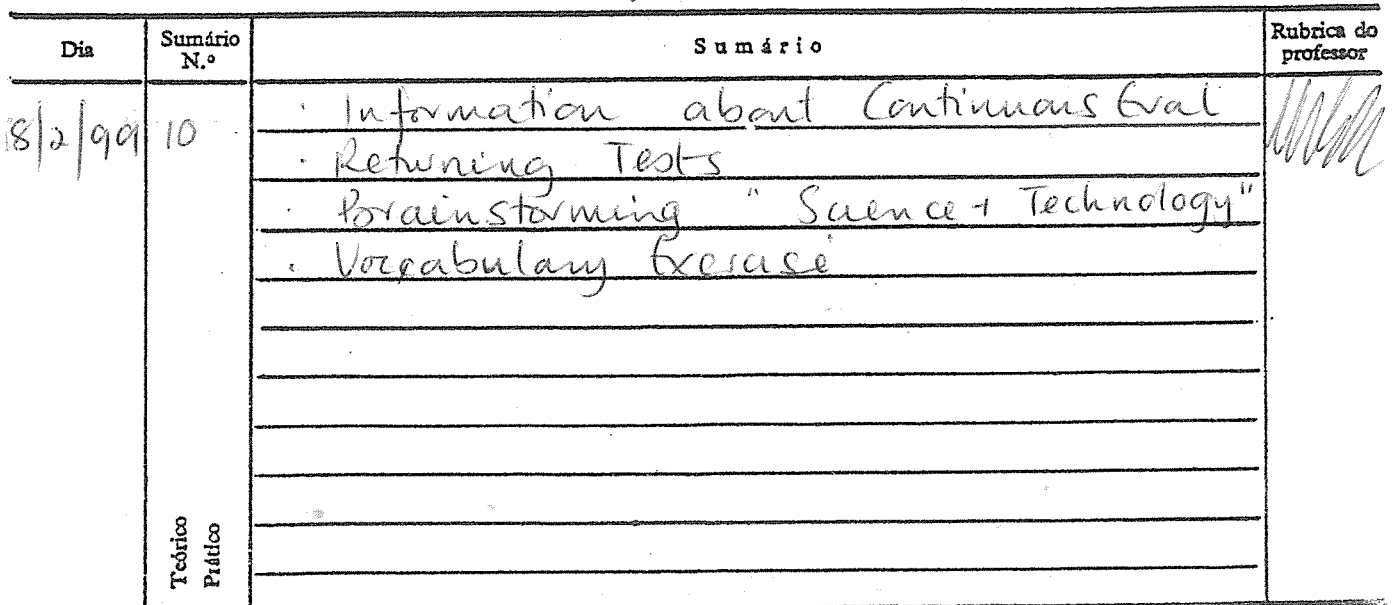 Dia Sumário N.º Sumário Rubrica do professor
8/2/99 10 · Information about Continuous Eval
· Returning Tests
· Brainstorming "Science + Technology"
· Voccabulary Exercise
Teórico
Prático